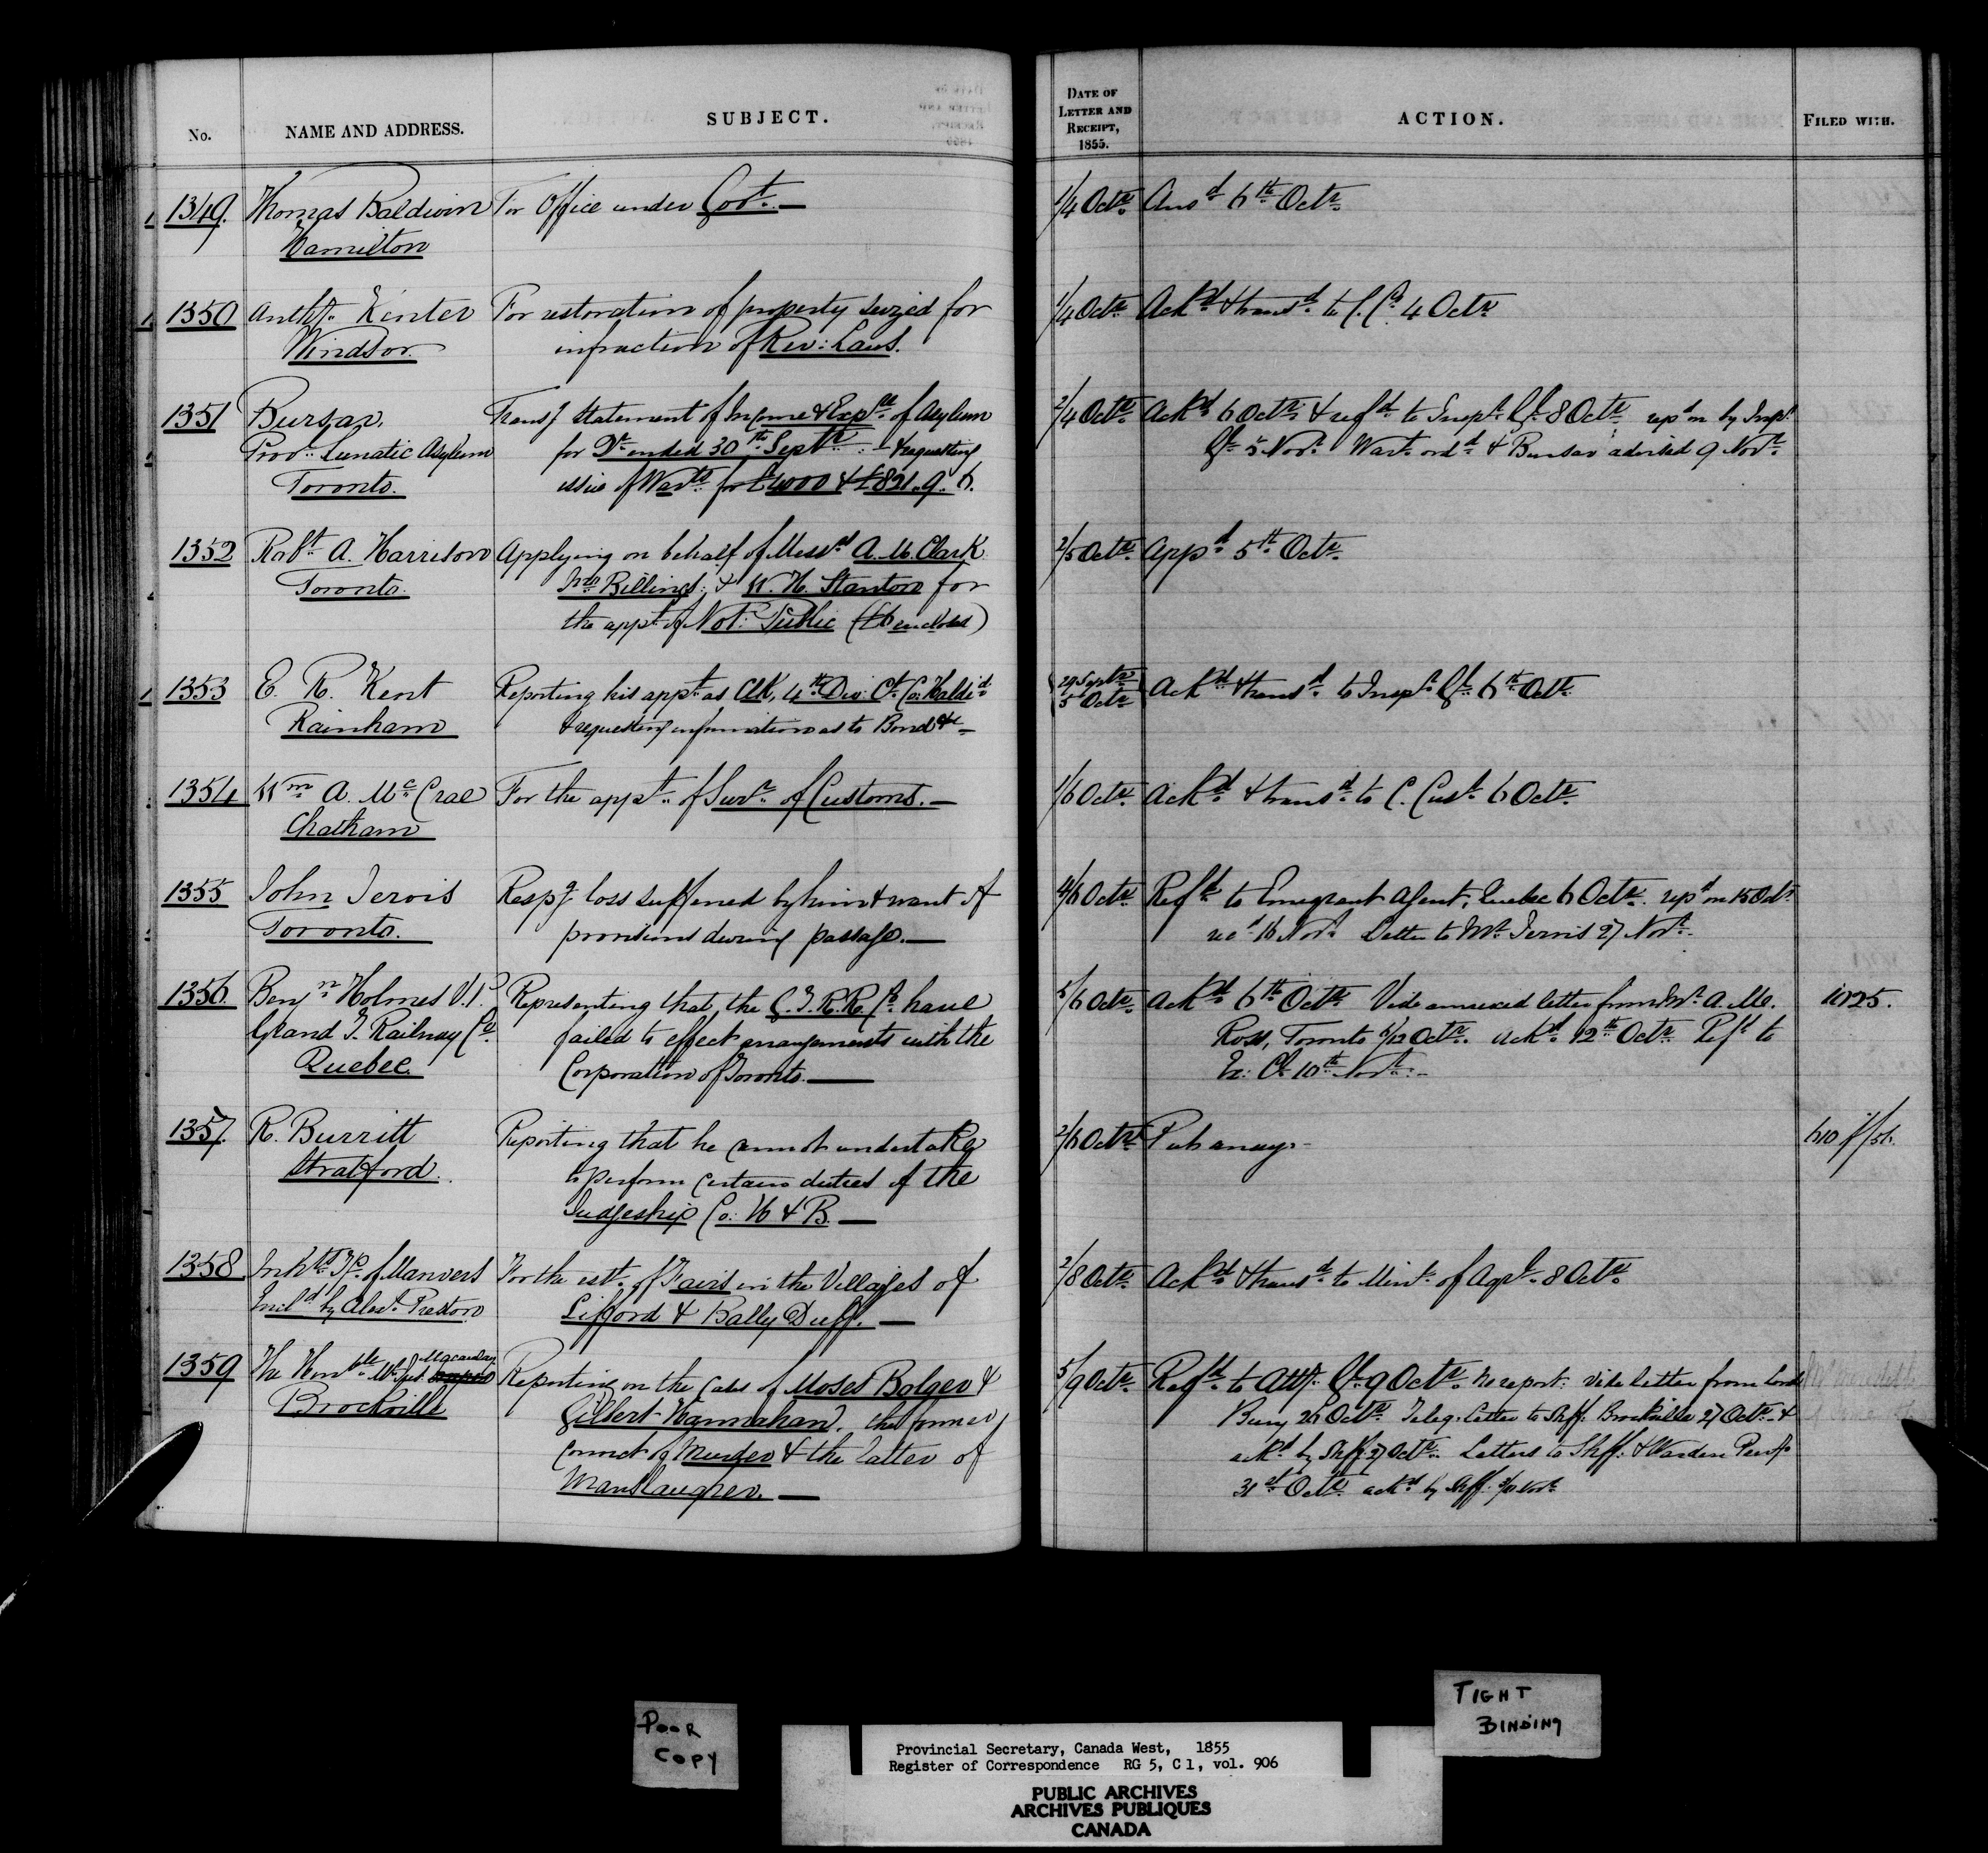 No. NAME AND ADDRESS. SUBJECT. DATE OF LETTER AND RECEIPT, 1855. ACTION. FILED WITH.
1349. Thomas Baldwin For Office under Govt. — 1/4 Octr. Ansd 6th Octr.
Hamilton
1350 Anthy. Kenter For restoration of property seized for 1/4 Octr. Ackd & transd. to C. Cs. 4 Octr.
Windsor. infraction of Rev: Laws.
1351 Bursar, Transg statement of Income & Expre of Asylum 2/4 Octr. Ackd 6 Octr. & refd to Inspr. Gl. 8 Octr. repd on by Inspr
Provl. Lunatic Asylum for Qr ended 30th Septr: & requesting Gl 5 Novr. Wart. ord & Bursar advised 9 Novr.
Toronto. issue of Warts. for £4000 & £821.9.6.
1352 Robt A. Harrison Applying on behalf of Messrs A. M. Clark 2/5 Octr. Appd 5th Octr.
Toronto. Jno Billings, & W. H. Stanton for
the appt. of Not: Public (£6 enclosed)
1353 E. R. Kent Reporting his appt. as Clk, 4th Div: Ct. Co. Haldd. 29 Septr 5 Octr Ackd & transd. to Inspr. Gl. 6th Octr.
Rainham & requesting information as to Bond &c —
1354 Wm A. McCrae For the appt. of Survr. of Customs. — 1/6 Octr. Ackd. & transd. to C. Cust. 6 Octr.
Chatham
1355 John Jervis Respg loss suffered by him & want of 4/6 Octr. Refd. to Emigrant Agent, Quebec 6 Octr. repd on 15 Octr
Toronto. provisions during passage. — recd 16 Novr. Letter to Mr. Jervis 27 Novr.
1356. Benjn Holmes V.P. Representing that the G.T.R.R. Co. have 5/6 Octr. Ackd. 6th Octr. Vide annexed letter from Mr. A. Mc.
Grand T. Railway Co. failed to effect arrangements with the Ross, Toronto /12 Octr. ackd. 12th Octr. Refd to
Quebec. Corporation of Toronto. — Ex: Cl. 10th Novr. —
1025.
1357. R. Burritt Reporting that he cannot undertake 2/6 Octr. Put away —
Stratford. to perform certain duties of the
Judgeship Co: H & B. —
1358 Inhts Tp. of Manvers For the estt. of Fairs in the Villages of 2/8 Octr. Ackd & transd. to Minr. of Agrl. 8 Octr.
Encld by Alexr. Preston Lifford & Bally Duff. —
1359 The Honble. Mr. Just. Macaulay Reporting on the cases of Moses Bolger & 5/9 Octr. Refd. to Atty. Gl. 9 Octr. No report: Vide letter from Lord
Brockville Gilbert Hannahan, the former Bury 26 Octr. Teleg. letter to Shff. Brockville 27 Octr. &
convict of Murder & the latter of ackd by Shff. 27 Octr. Letters to Shff. & Warden Peny
Manslaughter. — 31st Octr. ackd by Shff. Novr
POOR COPY
TIGHT BINDING
Provincial Secretary, Canada West, 1855
Register of Correspondence RG 5, C 1, vol. 906
PUBLIC ARCHIVES
ARCHIVES PUBLIQUES
CANADA